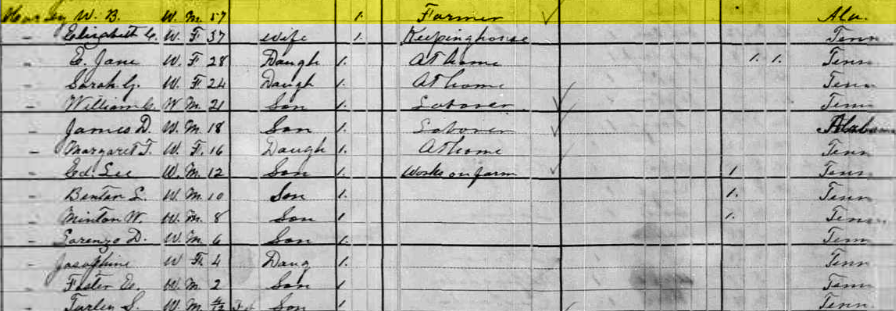 W. B. W. M. 57 1. Farmer Ala.
" Elizabeth C. W. F. 37 wife 1. Keepinghouse Tenn
" E. Jane W. F. 28 Daugh 1. At home 1. 1. Tenn
" Sarah G. W. F. 24 Daugh 1. At home Tenn
" William C. W. M. 21 Son 1. Laborer Tenn
" James D. W. M. 18 Son 1. Laborer
" Margaret T. W. F. 16 Daugh 1. At home Tenn
" Ed. Lee W. M. 12 Son 1. Works on farm 1. Tenn
" Benton L. W. M. 10 Son 1. 1. Tenn
" Minton W. W. M. 8 Son 1. 1. Tenn
" Lorenzo D. W. M. 6 Son 1. Tenn
" Josephine W. F. 4 Daug 1. Tenn
" Foster W. M. 2 Son 1. Tenn
" S. W. M. Son 1. Tenn